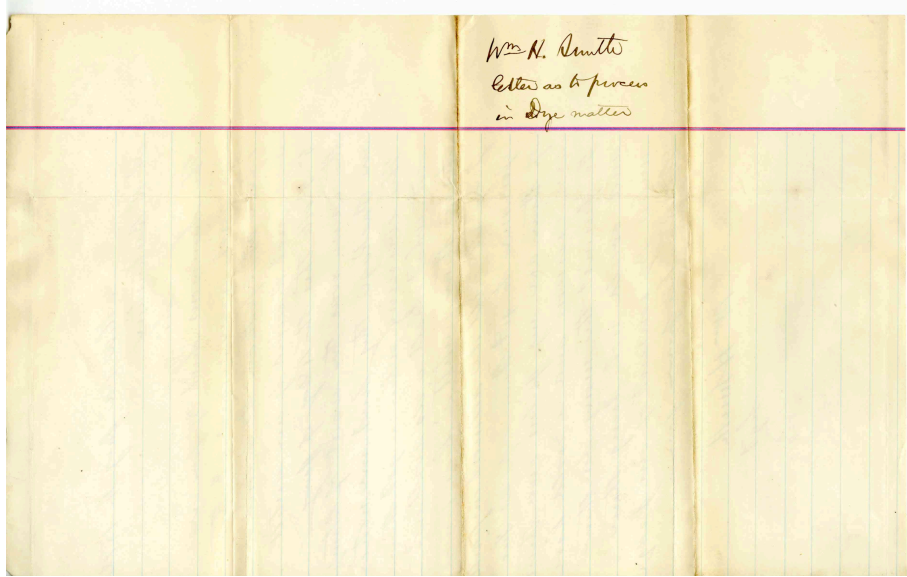 Wm H. Smith
letter as to process
in Dye matter